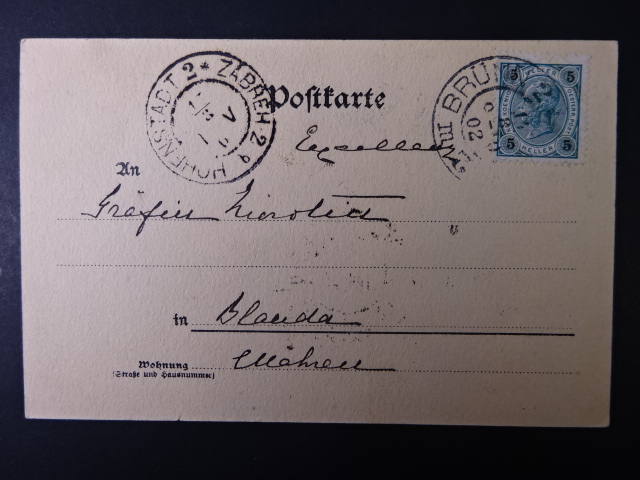 HOHENSTADT 2 * ZÁBŘEH 2
BRÜNN
02
5 HELLER 5
5 HELLER 5
Postkarte
An
Gräfin
in Blauda
Mähren
Wohnung
(Straße und Hausnummer)